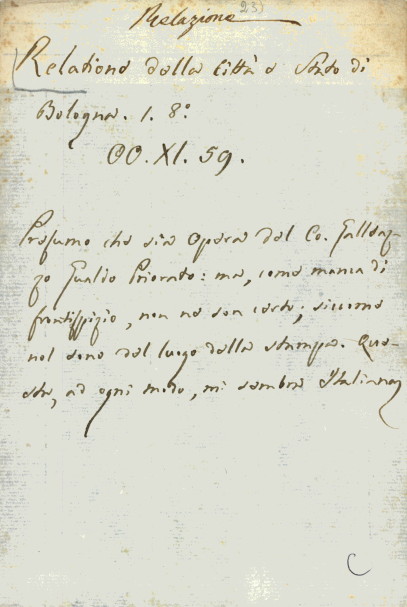 Relazione 23)
Relatione della Città e Stato di
Bologna. 1. 8.°
OO. XI. 59.
Presumo che sia Opera del Co. Galleaz-
zo Gualdo Priorato: ma, come manca di
frontispizio, non ne son certo; siccome
nol sono del luogo della stampa. Que-
sta, ad ogni modo, mi sembra Italiana
C